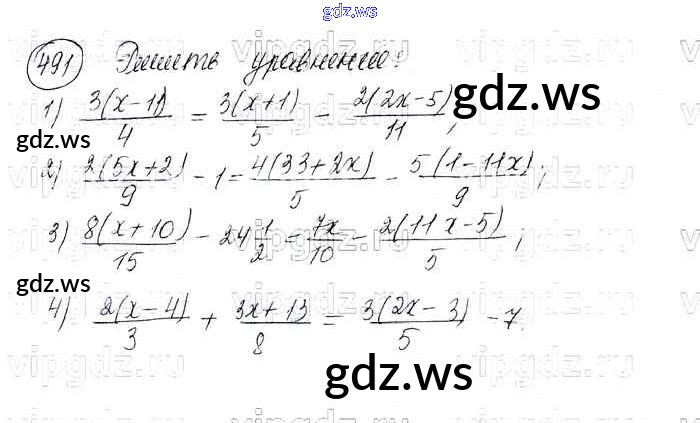 gdz.ws
491 Решить уравнение:
1) 3(x-11)/4 = 3(x+1)/5 - 2(2x-5)/11;
2) 2(5x+2)/9 - 1 = 4(33+2x)/5 - 5(1-11x)/9;
3) 8(x+10)/15 - 24 1/2 = 7x/10 - 2(11x-5)/5;
4) 2(x-4)/3 + 3x+13/8 = 3(2x-3)/5 - 7.
gdz.ws
gdz.ws
gdz.ws
gdz.ws
vipgdz.ru